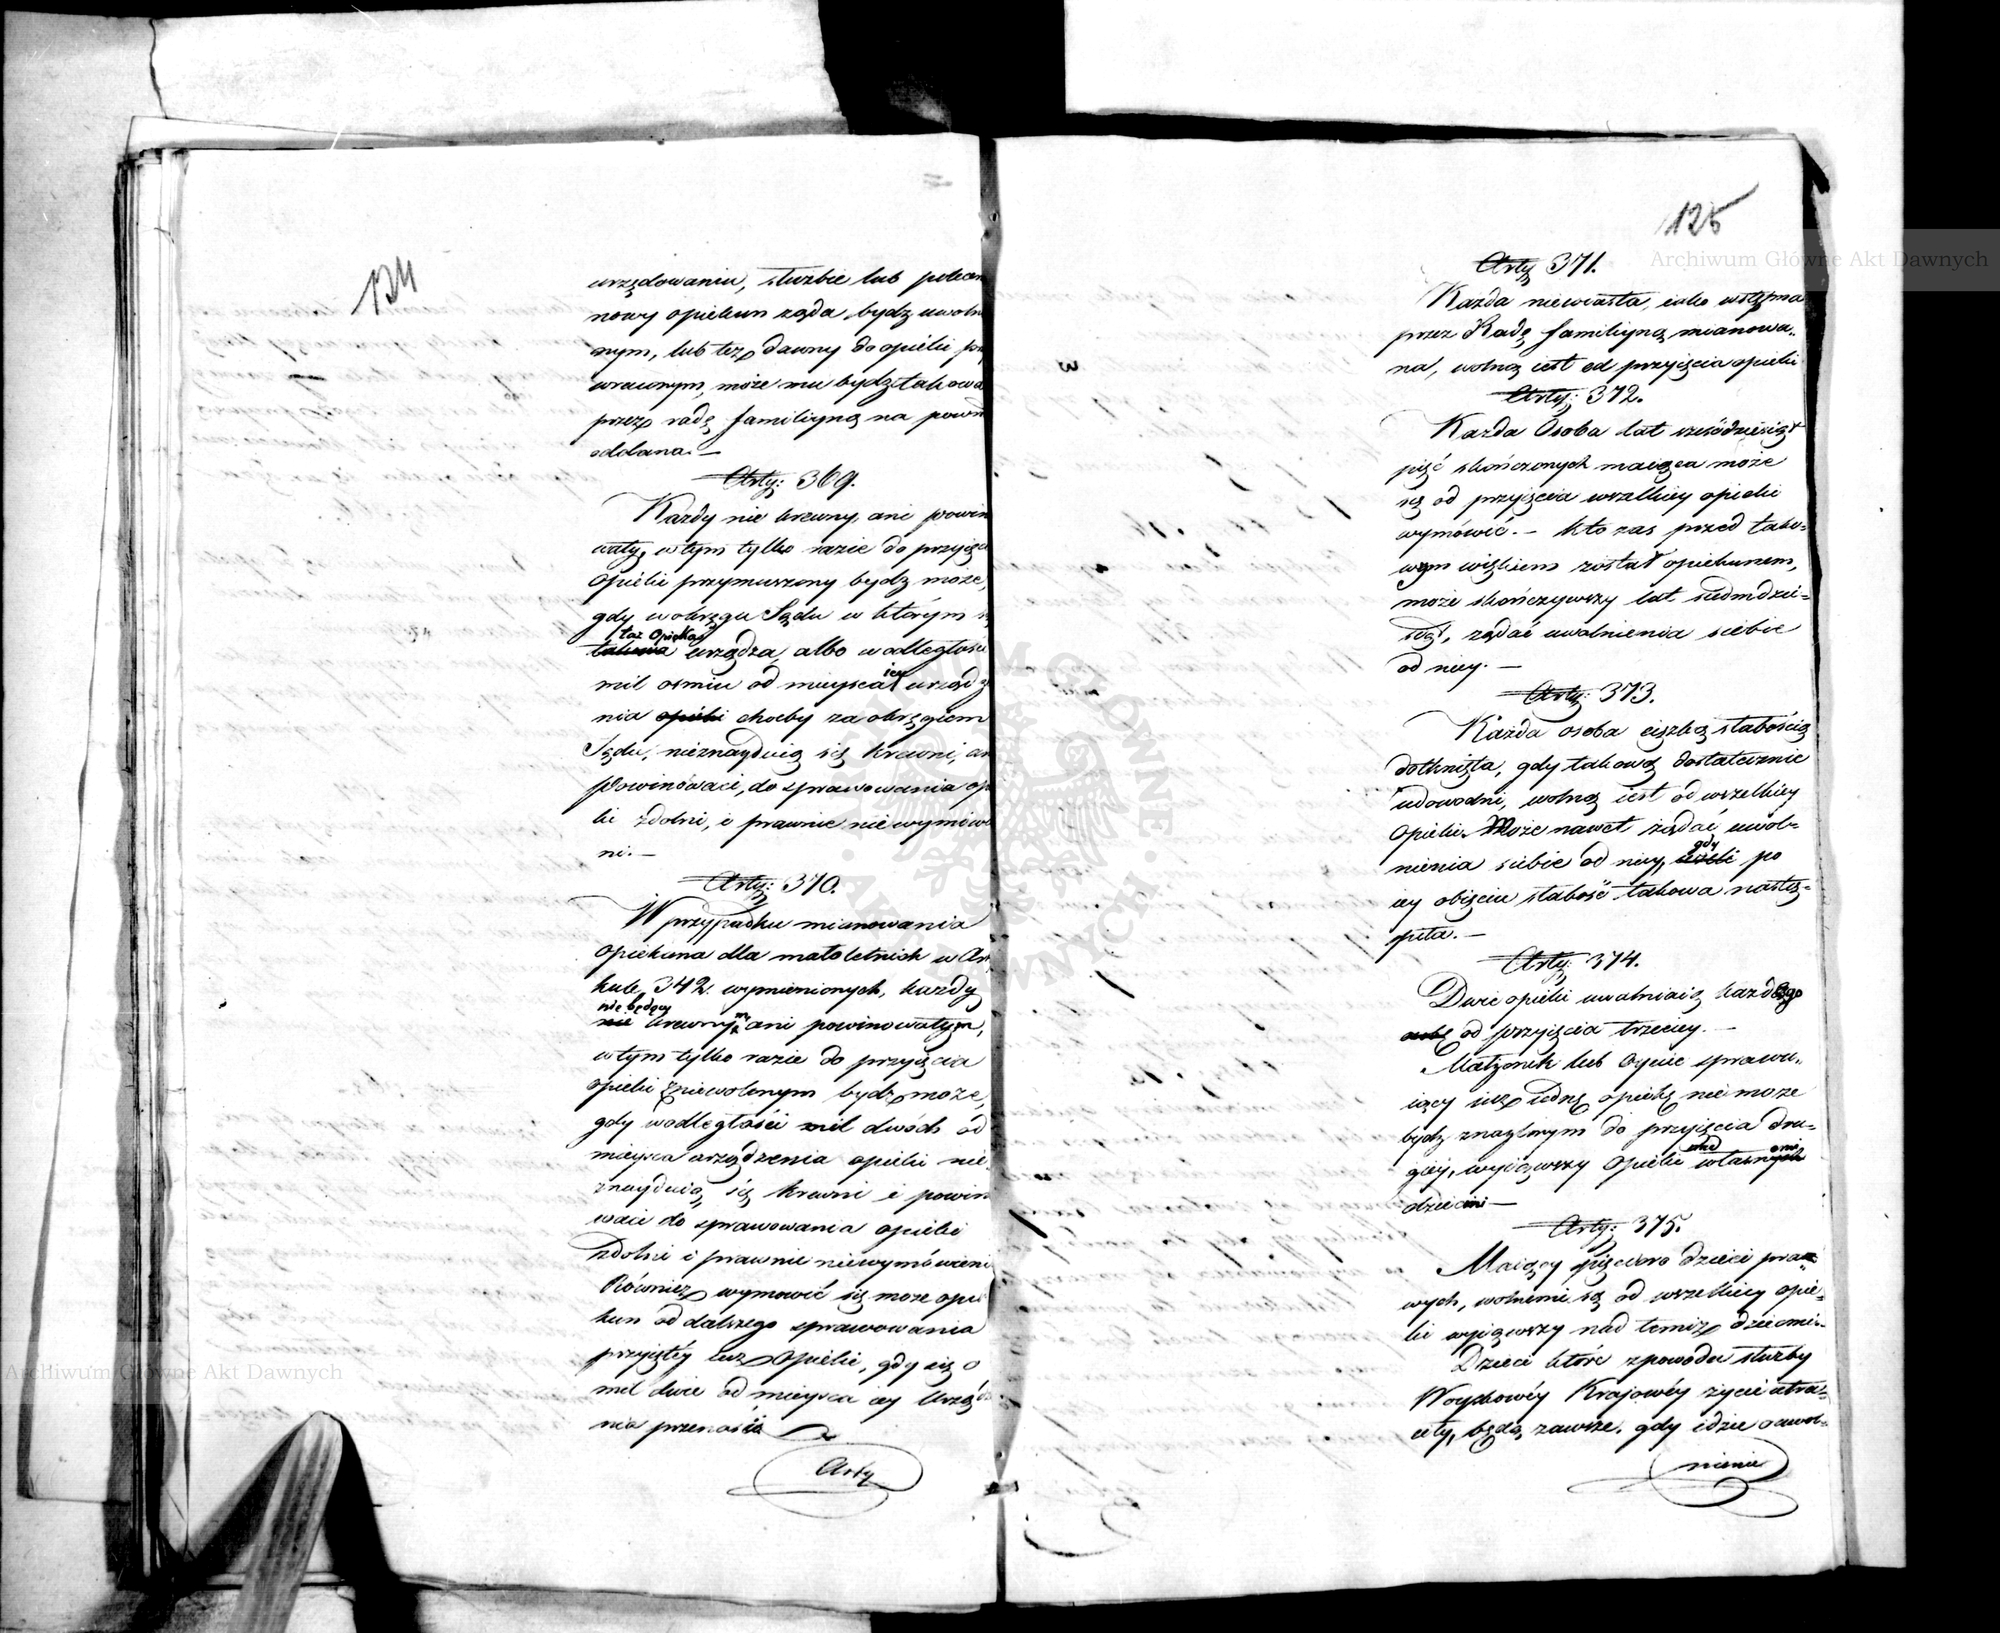 134
urzędowaniu, służbie lub polecen
nowy opiekun żąda bydź uwoln
nym, lub też dawny do opieki po
wraconym, może mu bydź takowa
przez radę familiyną na powró
oddana.—
Arty: 369.
Każdy nie krewny, ani powin
waty, w tym tylko razie do przyięcia
opieki przymuszony bydź może,
gdy w okręgu Sądu w którym się
taż Opieka
takowa urządza, albo w odległości
mil osmiu od mieysca iey urządze
nia opieki choćby za okręgiem
Sądu, nieznayduią się krewni, an
Powinowaci, do sprawowania op
ki zdolni, i prawnie nie wymów
ni.—
Arty: 370.
W przypadku mianowania
opiekuna dla małoletnich w Ar
kule 342. wymienionych, każdy
nie będący
nie krewnym ani powinowatym,
w tym tylko razie do przyięcia
opieki zniewolonym bydź może,
gdy w odległości mil dwóch od
mieysca urządzenia opieki nie
znayduią się krewni i powin
waci do sprawowania opieki
zdolni i prawnie niewymówieni
Również wymowić się może opie
kun od dalszego sprawowania
przyiętéy iuż opieki, gdy się o
mil dwie od mieysca iey urządze
nia przenosi
Arty
125
Arty 371.
Każda niewiasta, iako wstępna
przez Radę familiyną mianowa-
na, wolną iest od przyięcia opieki
Arty: 372.
Każda Osoba lat sześćdziesiąt
pięć skończonych maiąca może
się od przyięcia wszelkiey opieki
wymówić.— Kto zaś przed tako-
wym wiekiem został opiekunem,
może skończywszy lat siedmdzie-
siąt, żądać uwolnienia siebie
od niey.—
Arty: 373.
Każda osoba ciężką słabością
dotknięta, gdy takową dostatecznie
udowodni, wolną iest od wszelkiey
opieki. Może nawet żądać uwol-
nienia siebie od niey, gdy po
iey obięciu słabość takowa nastą-
piła.—
Arty: 374.
Dwie opieki uwalniaią każdego
od przyięcia trzeciey.—
Małżonek lub Oyciec sprawu-
iący iuż iednę opiekę nie może
bydź znaglonym do przyięcia dru-
giéy, wyiąwszy Opieki nad własnymi
dziećmi—
Arty: 375.
Maiący pięcioro dzieci pra-
wych, wolnemi są od wszelkiey opie-
ki wyiąwszy nad temiż dziećmi.
Dzieci które z powodu służby
Woyskowéy Kraiowéy życie utra-
ciły, będą zawsze, gdy idzie o uwol-
nienie
Archiwum Główne Akt Dawnych
Archiwum Główne Akt Dawnych